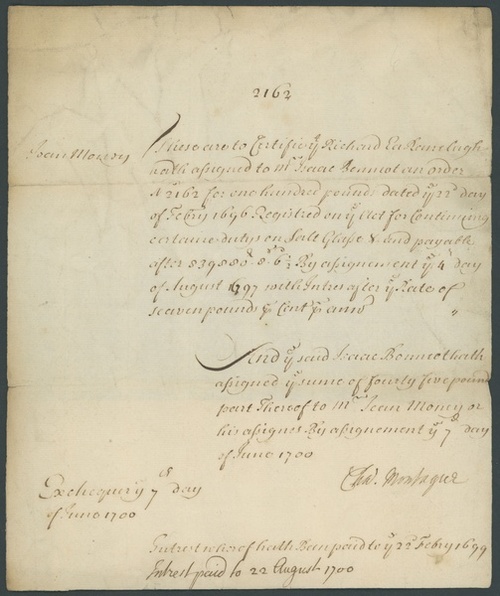 2162
Jean Moncoy
These are to Certifie yt Richard Ea: Ranelagh
hath assigned to Mr Isaac Bonnot an order
No 2162 for one hundred pounds dated ye 22th day
of Febry 1696 Registred on ye Act for Continuing
certaine dutys on Salt Glasse & and payable
after 839,880£ 8s 6d ½ By assignement ye 4 day
of August 1697 with Intrest after ye Rate of
seaven pounds p Cent p ann̄
And ye said Isaac Bonnot hath
assigned ye sume of fourty five pound
part Thereof to Mr Jean Moncoy or
his assignes By assignement ye 7th day
of June 1700
Chas. Montague
Exchequer ye 7th day
of June 1700
Intrest whereof hath Been paid to ye 22th Febry 1699
Intrest paid to 22 August 1700